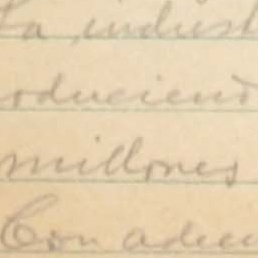 La indust
oduciend
millones
Con adec